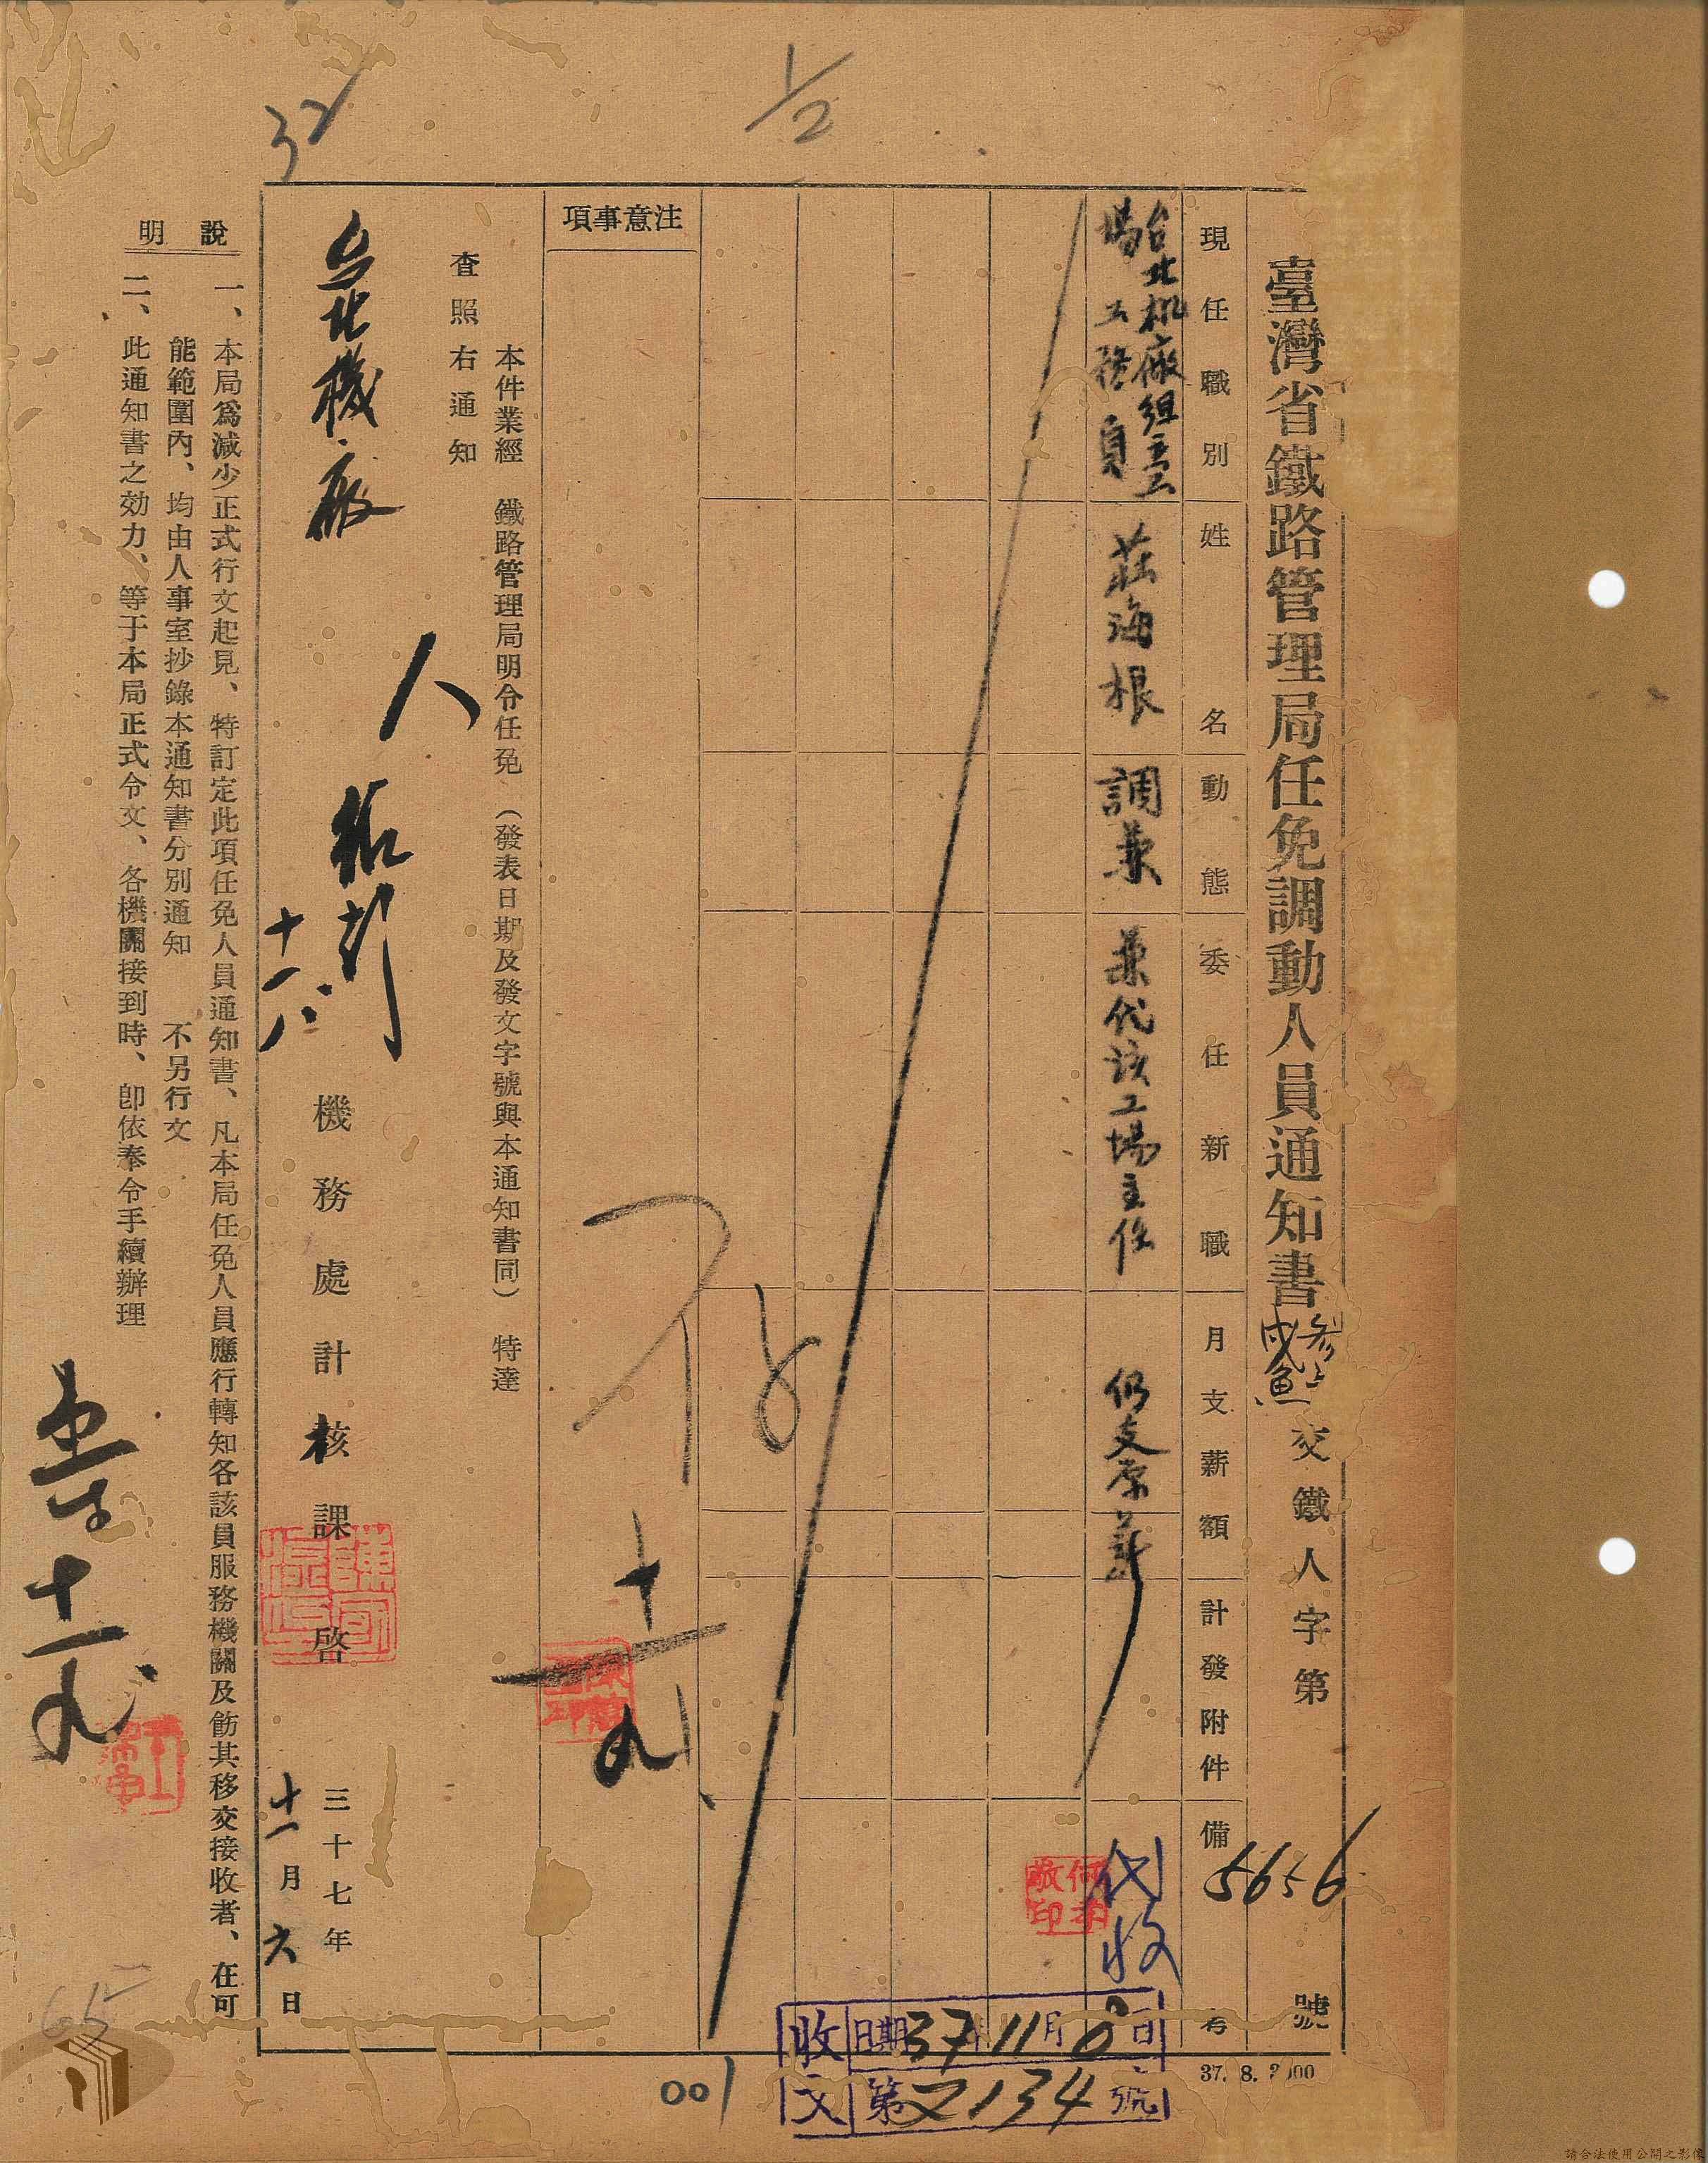 臺灣省鐵路管理局任免調動人員通知書
交鐵人字第5656號
現任職別
姓名
動態
委任新職
月支薪額
計發附件
備考
台北机廠組立工
場工務員
莊海根
調兼
兼代該工場主任
仍支原薪
代收
注意事項
本件業經 鐵路管理局明令任免(發表日期及發文字號與本通知書同) 特達
查照右通知
台北機廠
人
機務處計核課啓
三十七年
十一月六日
說明
一、本局爲減少正式行文起見、特訂定此項任免人員通知書、凡本局任免人員應行轉知各該員服務機關及飭其移交接收者、在可
能範圍內、均由人事室抄錄本通知書分別通知 不另行文
二、此通知書之効力、等于本局正式令文、各機關接到時、卽依奉令手續辦理
收文
日期37年11月8日
第文2134號
001
32
1/2
65
請合法使用公開之影像